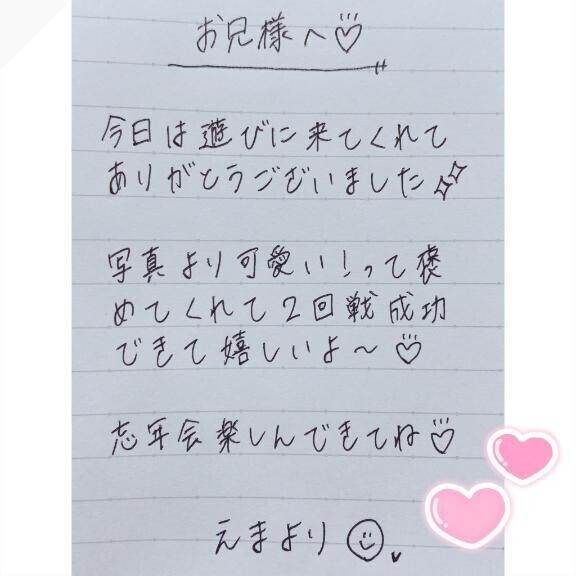 お兄様へ♡
今日は遊びに来てくれて
ありがとうございました✨
写真より可愛い!って褒
めてくれて2回戦成功
できて嬉しいよ〜♡
忘年会楽しんできてね♡
えまより☺